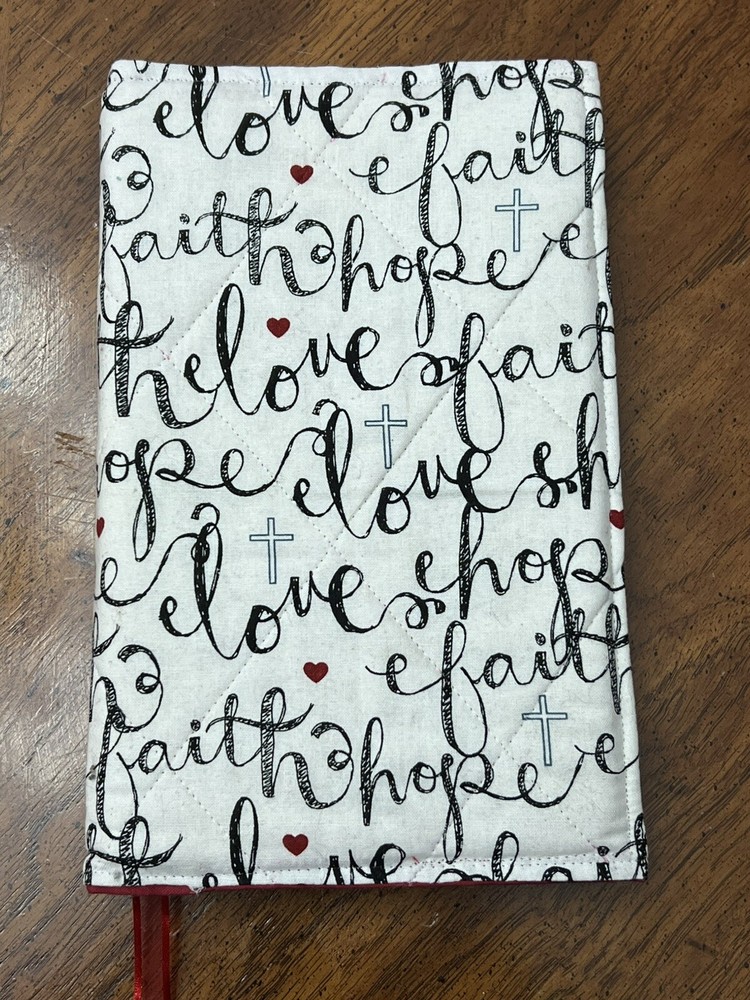 love hop
faith
faith hope
love fait
ope love
love hop
faith
faith hope